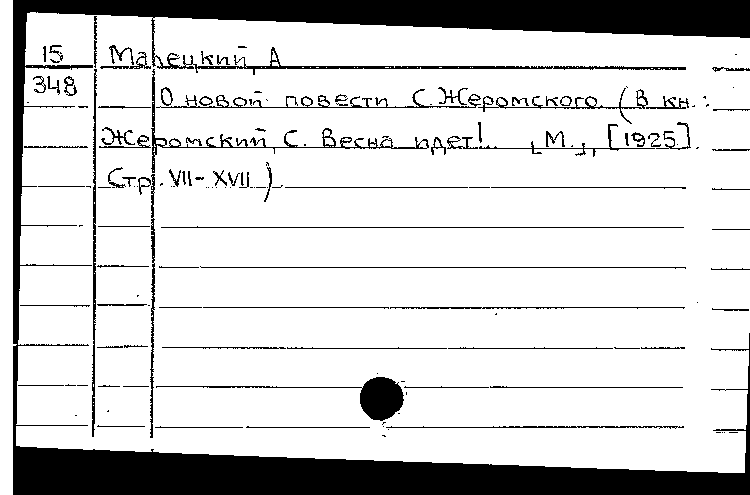 15 Малецкий, А
348
О новой повести С. Жеромского. (В кн.:
Жеромский, С. Весна идет!.. [М.], [1925].
Стр. VII-XVII)